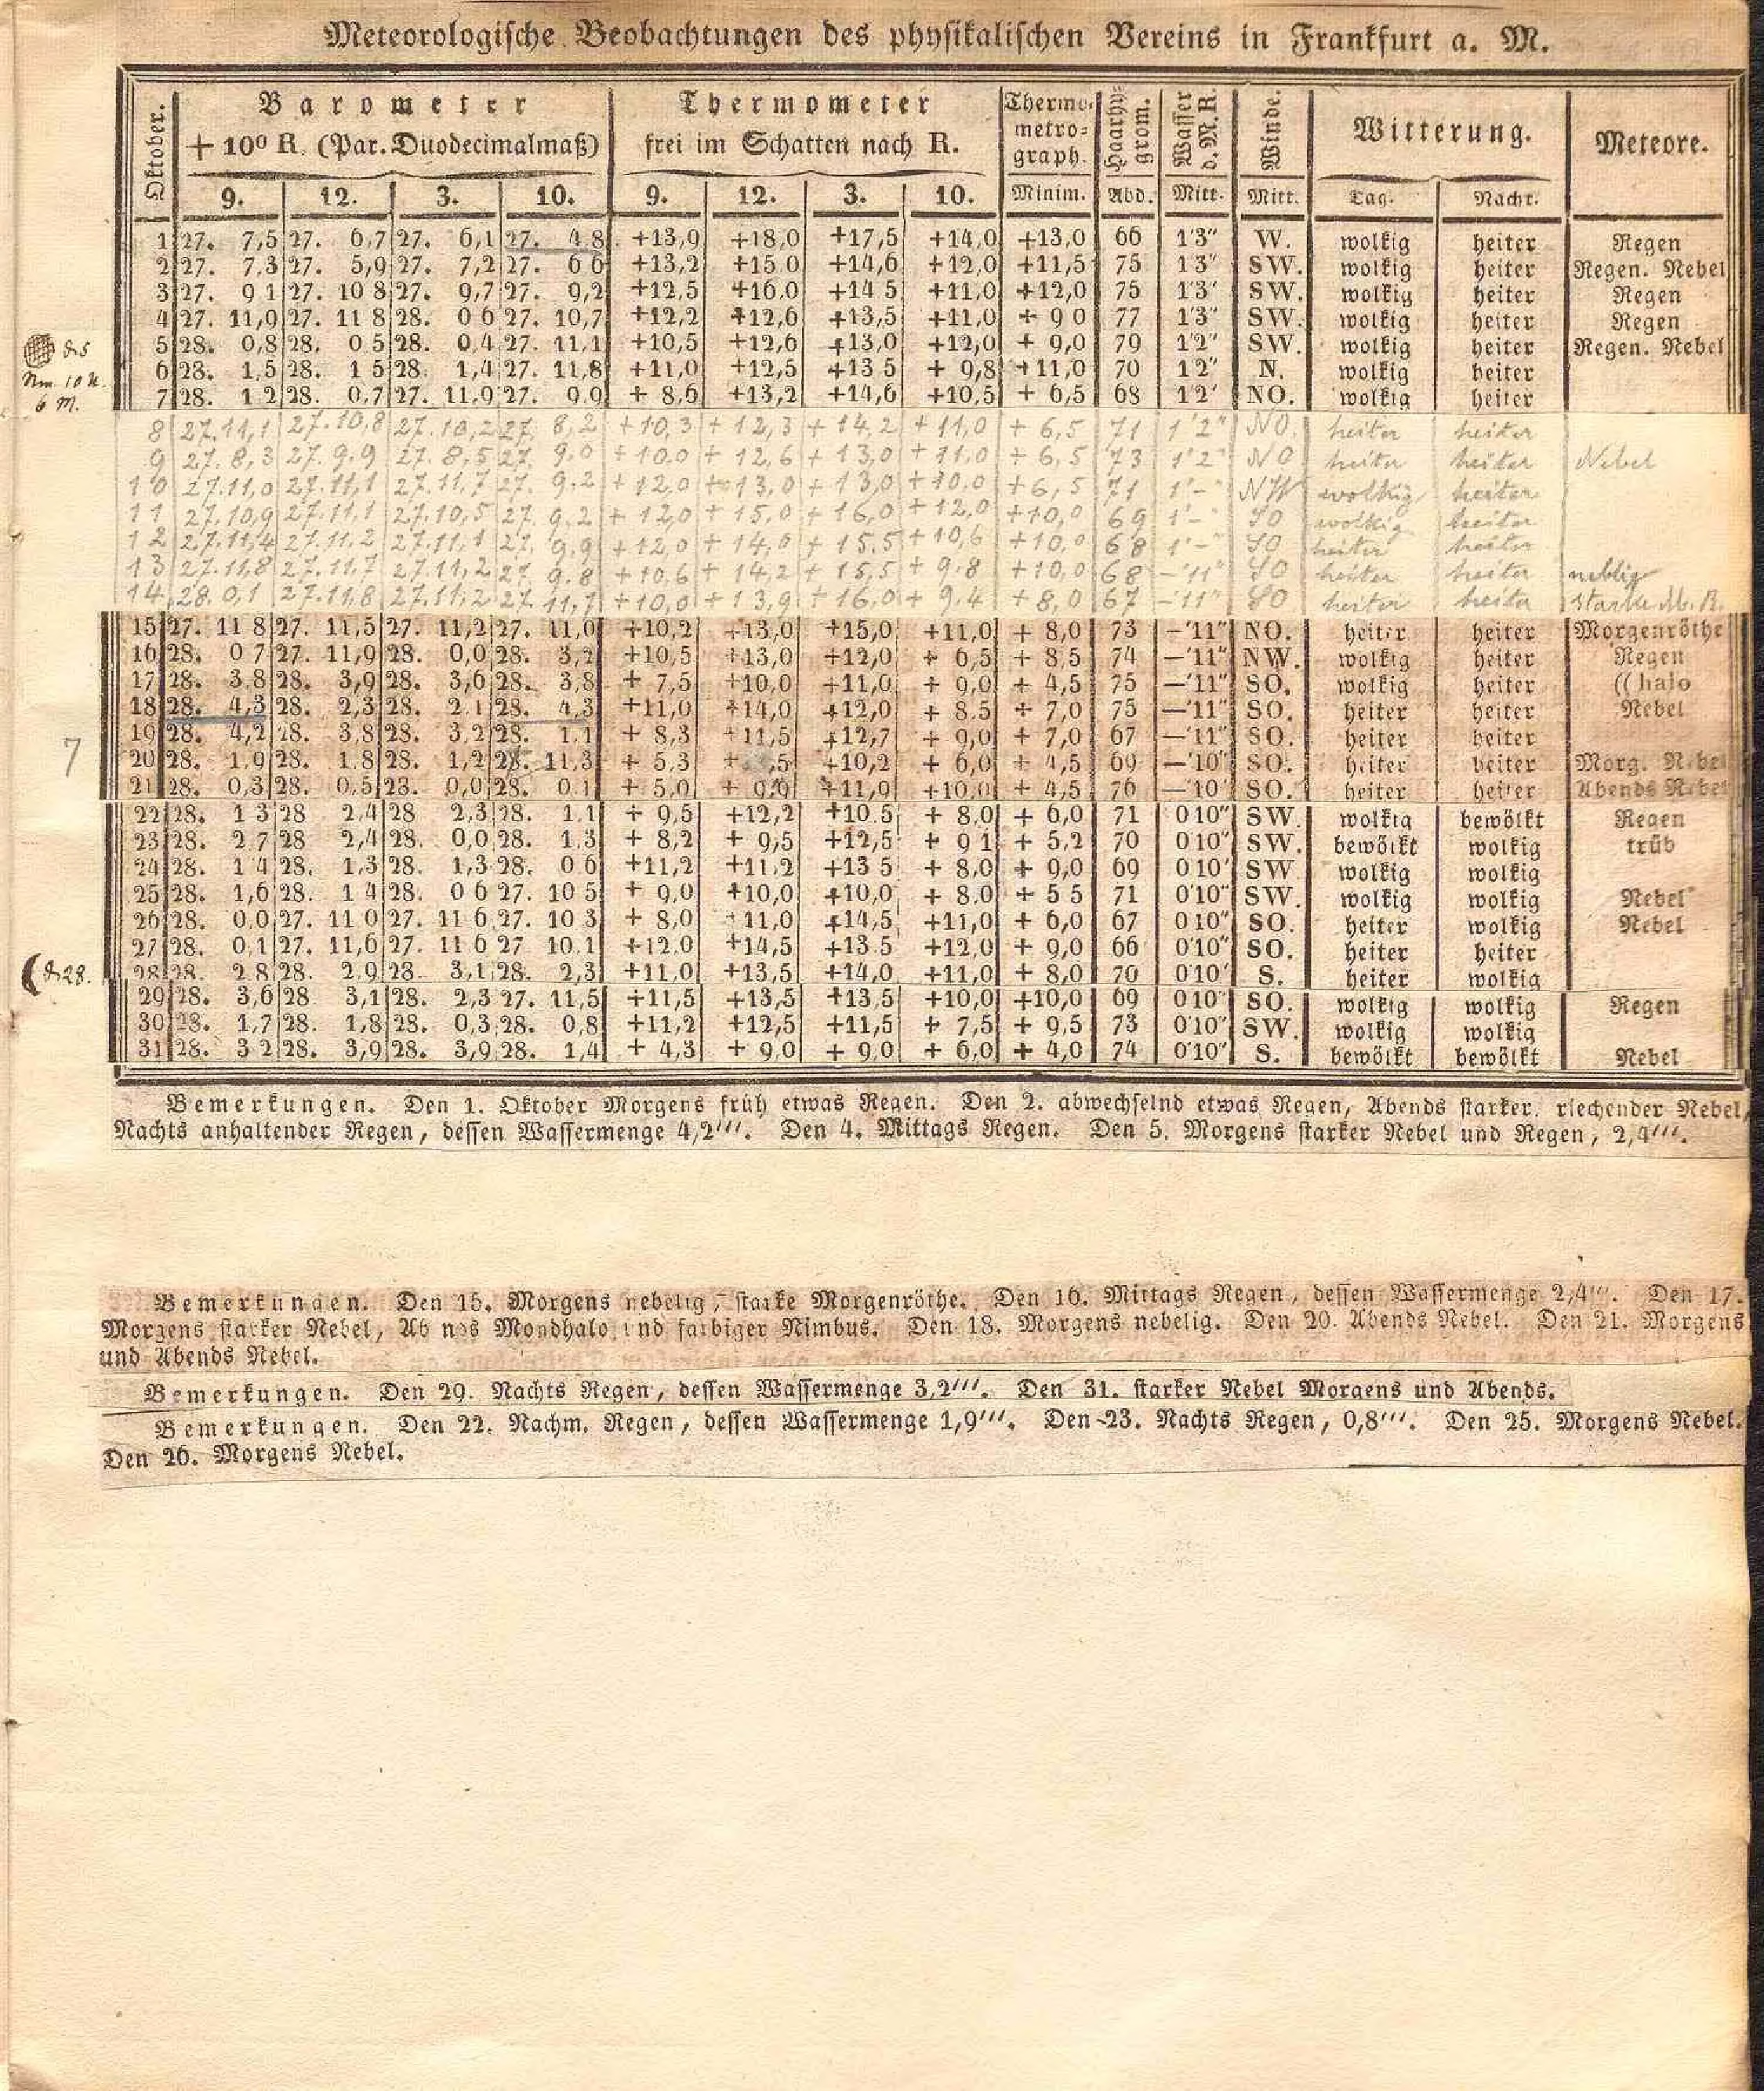 Meteorologische Beobachtungen des physikalischen Vereins in Frankfurt a. M.
Oktober. Barometer Thermometer Thermo- Haarhy- Wasser Winde. Witterung. Meteore.
+ 10⁰ R. (Par. Duodecimalmaß) frei im Schatten nach R. metro- grom. d. M. R.
graph.
9. 12. 3. 10. 9. 12. 3. 10. Minim. Abd. Mitt. Mitt. Tag. Nacht.
1 27. 7,5 27. 6,7 27. 6,1 27. 4,8 +13,9 +18,0 +17,5 +14,0 +13,0 66 1'3" W. wolkig heiter Regen
2 27. 7,3 27. 5,9 27. 7,2 27. 6 6 +13,2 +15 0 +14,6 +12,0 +11,5 75 1 3" SW. wolkig heiter Regen. Nebel
3 27. 9 1 27. 10 8 27. 9,7 27. 9,2 +12,5 +16,0 +14 5 +11,0 +12,0 75 1'3' SW. wolkig heiter Regen
4 27. 11,9 27. 11 8 28. 0 6 27. 10,7 +12,2 +12,6 +13,5 +11,0 + 9 0 77 1'3" SW. wolkig heiter Regen
5 28. 0,8 28. 0 5 28. 0,4 27. 11,1 +10,5 +12,6 +13,0 +12,0 + 9,0 79 1'2" SW. wolkig heiter Regen. Nebel
6 28. 1,5 28. 1 5 28. 1,4 27. 11,8 +11,0 +12,5 +13 5 + 9,8 +11,0 70 1 2" N. wolkig heiter
7 28. 1 2 28. 0,7 27. 11,9 27. 9,9 + 8,6 +13,2 +14,6 +10,5 + 6,5 68 1 2' NO. wolkig heiter
8 27. 11,1 27. 10,8 27. 10,2 27. 8,2 +10,3 + 12,3 + 14,2 + 11,0 + 6,5 71 1'2" NO. heiter heiter
9 27. 8,3 27. 9.9 27. 8,5 27. 9.0 +10.0 + 12,6 + 13,0 + 11.0 + 6,5 73 1'2" NO heiter heiter Nebel
10 27. 11,0 27. 11,1 27. 11,7 27. 9.2 + 12.0 + 13,0 + 13,0 + 10.0 + 6,5 71 1'-" NW wolkig heiter
11 27. 10,9 27. 11,1 27. 10,5 27. 9.2 + 12,0 + 15,0 + 16,0 + 12,0 +10,0 69 1'-" SO wolkig heiter
12 27. 11,4 27. 11,2 27. 11,1 27. 9,9 +12,0 + 14,0 + 15.5 + 10,6 +10,0 68 1'-" SO heiter heiter
13 27. 11,8 27. 11,7 27. 11,2 27. 9.8 +10,6 + 14,2 + 15,5 + 9.8 +10,0 68 -'11" SO heiter heiter neblig
14 28. 0,1 27. 11,8 27. 11,2 27. 11,7 +10,0 + 13,9 + 16,0 + 9.4 + 8,0 67 -'11" SO heiter heiter starke
15 27. 11 8 27. 11,5 27. 11,2 27. 11,0 +10,2 +13,0 +15,0 +11,0 + 8,0 73 —'11" NO. heiter heiter Morgenröthe
16 28. 0 7 27. 11,9 28. 0,0 28. 3,2 +10,5 +13,0 +12,0 + 6,5 + 8,5 74 —'11" NW. wolkig heiter Regen
17 28. 3 8 28. 3,9 28. 3,6 28. 3,8 + 7,5 +10,0 +11,0 + 9,0 + 4,5 75 —'11" SO. wolkig heiter (( halo
18 28. 4,3 28. 2,3 28. 2.1 28. 4,3 +11,0 +14,0 +12,0 + 8.5 + 7,0 75 —'11" SO. heiter heiter Nebel
19 28. 4,2 28. 3,8 28. 3,2 28. 1,1 + 8,3 +11,5 +12,7 + 9,0 + 7,0 67 —'11" SO. heiter heiter
20 28. 1,9 28. 1,8 28. 1,2 28. 11,3 + 5,3 + ,5 +10,2 + 6,0 + 4,5 69 —'10" SO. heiter heiter Morg. Nebel
21 28. 0,3 28. 0,5 28. 0,0 28. 0 1 + 5,0 + 9,0 +11,9 +10,0 + 4,5 76 —'10' SO. heiter heiter Abends Nebel
22 28. 1 3 28 2,4 28 2,3 28. 1,1 + 9,5 +12,2 +10.5 + 8,0 + 6,0 71 0 10" SW. wolkig bewölkt Regen
23 28. 2 7 28 2,4 28. 0,0 28. 1,3 + 8,2 + 9,5 +12,5 + 9 1 + 5,2 70 0 10" SW. bewölkt wolkig trüb
24 28. 1 4 28. 1,3 28. 1,3 28. 0 6 +11,2 +11,2 +13 5 + 8,0 + 9,0 69 0 10' SW wolkig wolkig
25 28. 1,6 28. 1 4 28. 0 6 27. 10 5 + 9,0 +10,0 +10,0 + 8,0 + 5 5 71 0'10" SW. wolkig wolkig Nebel
26 28. 0,0 27. 11 0 27. 11 6 27. 10 3 + 8,0 +11,0 +14,5 +11,0 + 6,0 67 0 10" SO. heiter wolkig Nebel
27 28. 0,1 27. 11,6 27. 11 6 27 10.1 +12,0 +14,5 +13.5 +12,0 + 9,0 66 0'10" SO. heiter heiter
28 28. 2 8 28. 2,9 28. 3,1 28. 2,3 +11,0 +13,5 +14,0 +11,0 + 8,0 70 0 10' S. heiter wolkig
29 28. 3,6 28 3,1 28. 2,3 27. 11,5 +11,5 +13,5 +13,5 +10,0 +10,0 69 0 10" SO. wolkig wolkig Regen
30 28. 1,7 28. 1,8 28. 0,3 28. 0,8 +11,2 +12,5 +11,5 + 7,5 + 9,5 73 0'10" SW. wolkig wolkig
31 28. 3 2 28. 3,9 28. 3,9 28. 1,4 + 4,3 + 9,0 + 9,0 + 6,0 + 4,0 74 0'10" S. bewölkt bewölkt Nebel
7
Bemerkungen. Den 1. Oktober Morgens früh etwas Regen. Den 2. abwechselnd etwas Regen, Abends starker, riechender Nebel,
Nachts anhaltender Regen, dessen Wassermenge 4,2'''. Den 4. Mittags Regen. Den 5. Morgens starker Nebel und Regen, 2,4'''.
Bemerkungen. Den 15. Morgens nebelig, starke Morgenröthe. Den 16. Mittags Regen, dessen Wassermenge 2,4'''. Den 17.
Morgens starker Nebel, Abends Mondhalo und farbiger Nimbus. Den 18. Morgens nebelig. Den 20. Abends Nebel. Den 21. Morgens
und Abends Nebel.
Bemerkungen. Den 29. Nachts Regen, dessen Wassermenge 3,2'''. Den 31. starker Nebel Morgens und Abends.
Bemerkungen. Den 22. Nachm. Regen, dessen Wassermenge 1,9'''. Den 23. Nachts Regen, 0,8'''. Den 25. Morgens Nebel.
Den 26. Morgens Nebel.